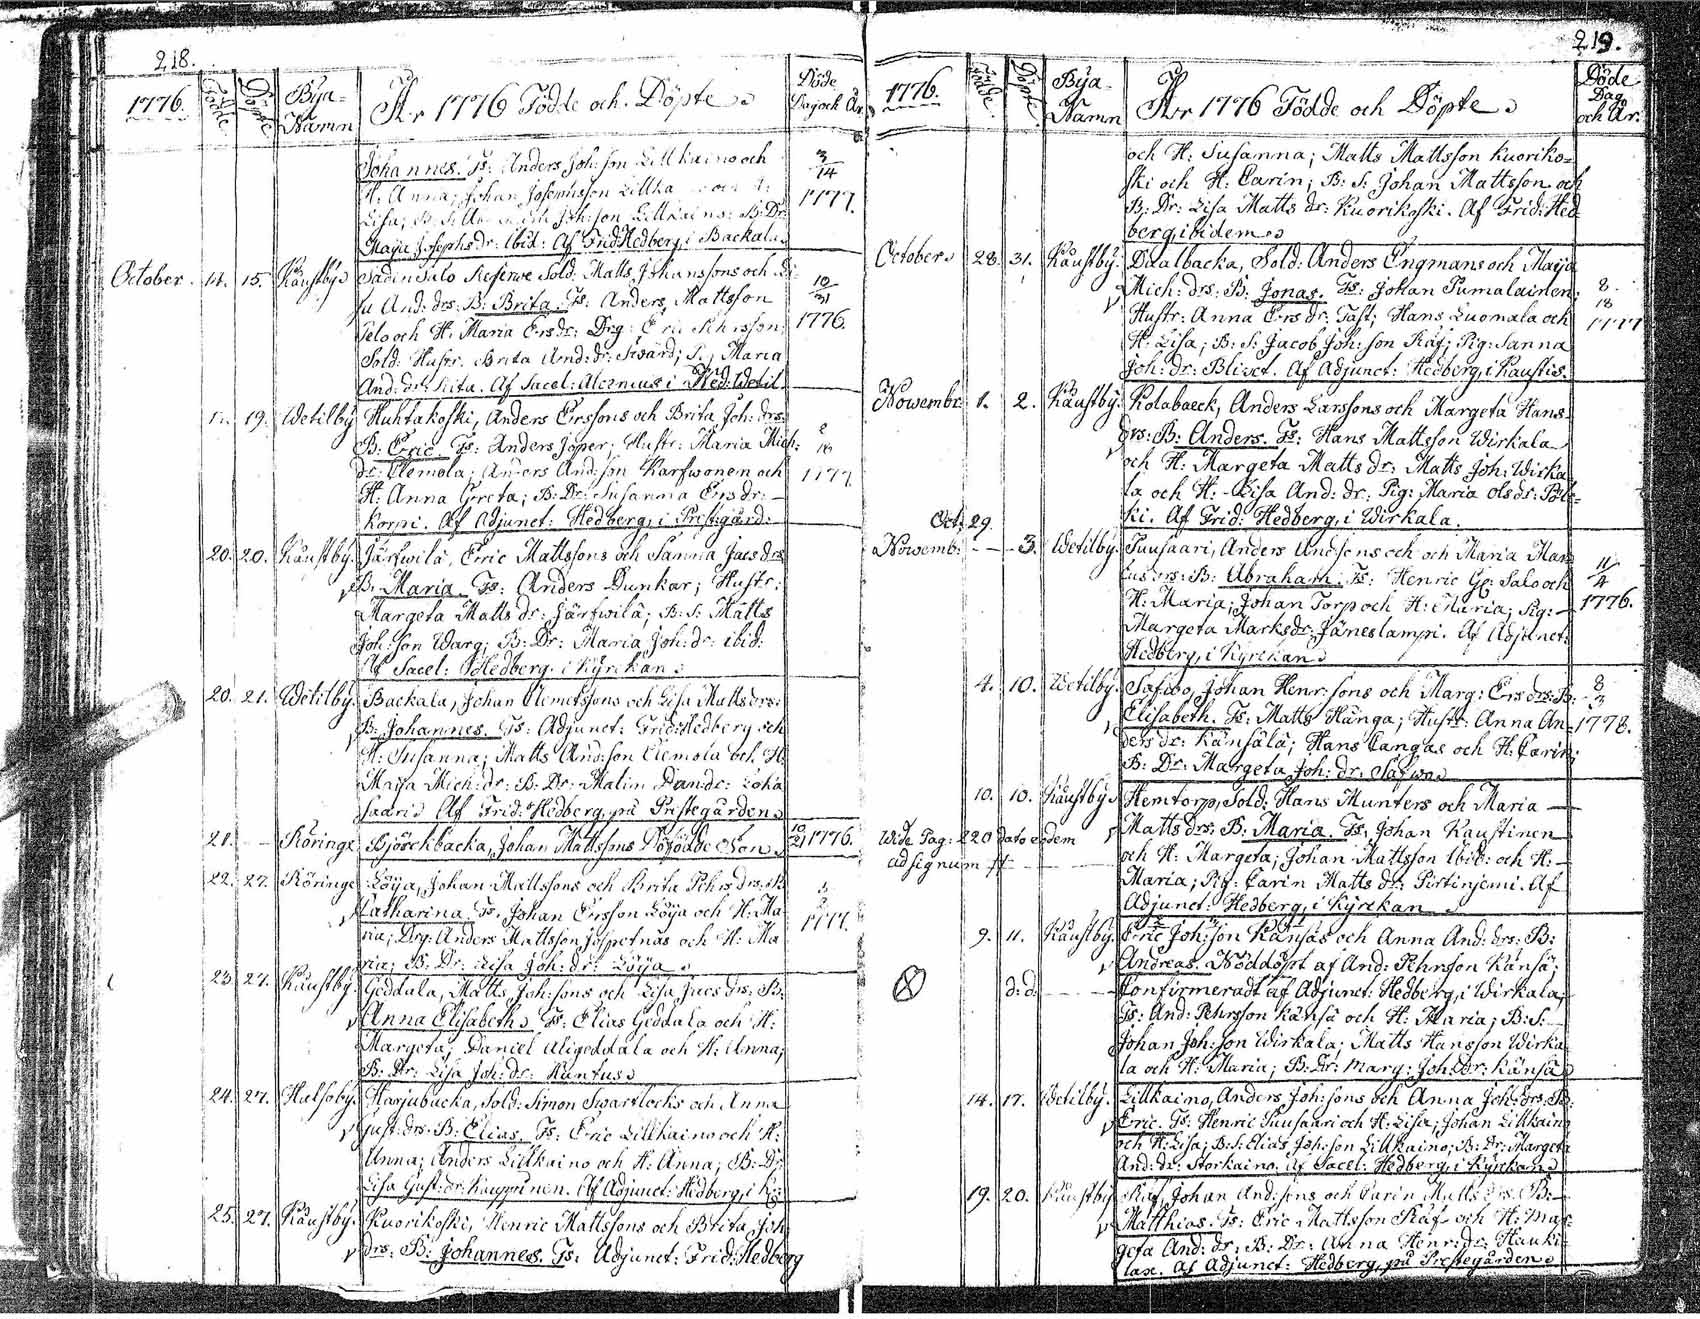 218.
1776.
Födde
Döpte
Bÿa-
Namn
Åhr 1776 Födde och Döpte
Döde
Dag och År.
Johannes. Fs: Anders Joh:son Lillkaino och
H: Anna; Johan Josephsson Lillka och H:
Lisa; B: S: Joh:son Lillkaino: B: Dr:
Maija Josephs dr: ibid: Af Frid: Hedberg, i Backala
3/14
1777.
October. 14. 15. Kaustby
Sadinsalo Reserwe Sold: Matts Johanssons och Li-
sa And: drs: B: Brita. Fs: Anders Mattsson
Pelo och H: Maria Ers dr; Drg: Eric Pehrsson;
Sold: Hustr: Brita And: dr: Swärd; P: Maria
And: dr: Rita. Af Sacel: Alcenius i Ned: Wetil.
10/31
1776.
19. Wetilby
Huhtakoski, Anders Erssons och Brita Joh: drs:
B: Eric. Fs: Anders Jöper; Hustr: Maria Mich:
dr: Clemola; Anders And:son Karfwonen och
H: Anna Greta; B: Dr: Susanna Ers dr:
Korpi. Af Adjunct: Hedberg, i Prestegård:
2/18
1777.
20. 20. Kaustby.
Järfwilä, Eric Mattssons och Sanna Jacs drs
B: Maria. Fs: Anders Dunkar; Hustr:
Margeta Matts dr: Järfwilä; B: S: Matts
Joh:son Warg; B: Dr: Maria Joh: dr: ibid:
Af Sacel: Hedberg. i Kÿrckan
20. 21. Wetilby.
Backala, Johan Clemetssons och Lisa Matts drs:
B: Johannes. Fs: Adjunct: Frid: Hedberg och
H: Susanna; Matts And:son Clemola och H:
Maija Mich: dr: B: Dr: Malin Dan dr: Loka
saari Af Frid: Hedberg, på Prestegården
21. Röringe
Björckbacka, Johan Mattssons Dödfödde Son
10/21 1776.
22. 27. Röringe
Löÿa, Johan Mattssons och Brita Pehrs drs: B:
Catharina. Fs. Johan Ersson Löÿa och H: Ma-
ria; Drg: Anders Mattsson Jospetnäs och H: Ma
ria; B: Dr: Lisa Joh: dr: Löÿa
1777.
23 27. Kaustby.
Geddala, Matts Joh:sons och Lisa Jacs drs, B:
Anna Elisabeth Fs: Elias Geddala och H:
Margeta; Daniel Aligeddala och H: Anna;
B: Dr: Lisa Joh: dr: Huntus
24. 27. Halsoby.
Harjubacka, Sold: Simon Swartlocks och Anna
Just: drs: B: Elias. Fs: Eric Lillkaino och H:
Anna; Anders Lillkaino och H: Anna; B: Dr:
Lisa Gust: dr: Kauppinen. Af Adjunct: Hedberg, i K
25. 27. Kaustby.
Kuorikoski, Henric Mattssons och Brita Joh
drs: B: Johannes. Fs: Adjunct: Frid: Hedberg
219.
1776.
Födde
Döpte
Bÿa-
Namn
Åhr 1776 Födde och Döpte
Döde
Dag
och År.
och H: Susanna; Matts Mattsson Kuoriko=
ski och H: Carin; B: S: Johan Mattsson och
B: Dr: Lisa Matts dr: Kuorikoski. Af Frid: Hed-
berg ibidem
October 28. 31. Kaustby.
Daalbacka, Sold: Anders Engmans och Maija
Mich: drs: B: Jonas. Fs: Johan Pumalainen;
Hustr: Anna Ers dr: Tast; Hans Luomala och
H: Lisa; B: S: Jacob Joh:son Räf; Pig: Sanna
Joh: dr: Blixt. Af Adjunct: Hedberg, i Kaustis.
8/18
1777
Nowembr: 1. 2. Kaustby.
Kolabaeck, Anders Larssons och Margeta Hans
drs: B: Anders. Fs: Hans Mattsson Wirkala
och H: Margeta Matts dr: Matts Joh: Wirka-
la och H: Lisa And: dr: Pig: Maria Ols dr: Pöls-
ki. Af Frid: Hedberg, i Wirkala.
Oct: 29.
Nowemb: 3. Wetilby.
Tuusaari, Anders Andsons och och Maria Mar
cus drs: B: Abraham. Fs: Henric Gr: Salo och
H: Maria; Johan Torp och H: Maria; Pig:
Margeta Marks dr: Jäneslampi. Af Adjunct:
Hedberg, i Kÿrckan
11/4
1776.
4. 10. Wetilby.
Safwo, Johan Henr:sons och Marg: Ers drs: B:
Elisabeth. Fs: Matts Hänga; Hustr: Anna An-
ders dr: Känsälä; Hans Cangas och H: Carin;
B: Dr: Margeta Joh: dr: Safwo
8/3
1778.
10. 10. Kaustby
Hemtorp, Sold: Hans Munters och Maria
Matts drs: B: Maria. Fs, Johan Kaustinen
och H: Margeta; Johan Mattsson Ibid: och H:
Maria; Pig: Carin Matts dr: Pirtinjemi. Af
Adjunct: Hedberg, i Kÿrckan
Wide Pag: 220 dato eodem
ad signum
9. 11. Kaustby.
Eric Joh:son Känsäs och Anna And: drs: B:
Andreas. Nöddöpt af And: Pehrsson Känsä;
d: d:
Confirmeradt af Adjunct: Hedberg, i Wirkala;
Fs: And: Pehrsson Känsä och H: Maria; B: S:
Johan Joh:son Wirkala; Matts Hansson Wirka
la och H: Maria; B: Dr: Marg: Joh: dr: Känsä
14. 17. Wetilby.
Lillkaino, Anders Joh:sons och Anna Joh: drs: B:
Eric. Fs: Henric Tuusaari och H: Lisa; Johan Lillkaino
och H: Lisa; B: S: Elias Joh:son Lillkaino; B: Dr: Margeta
And: dr: Storkaino. Af Sacel: Hedberg, i Kÿrckan
19. 20. Kaustby
Räf, Johan And:sons och Carin Matts drs: B:
Matthias. Fs: Eric Mattsson Räf och H: Mar-
geta And: dr: B: Dr: Anna Henr: dr: Hauki-
lax. Af Adjunct: Hedberg, på Prestegården